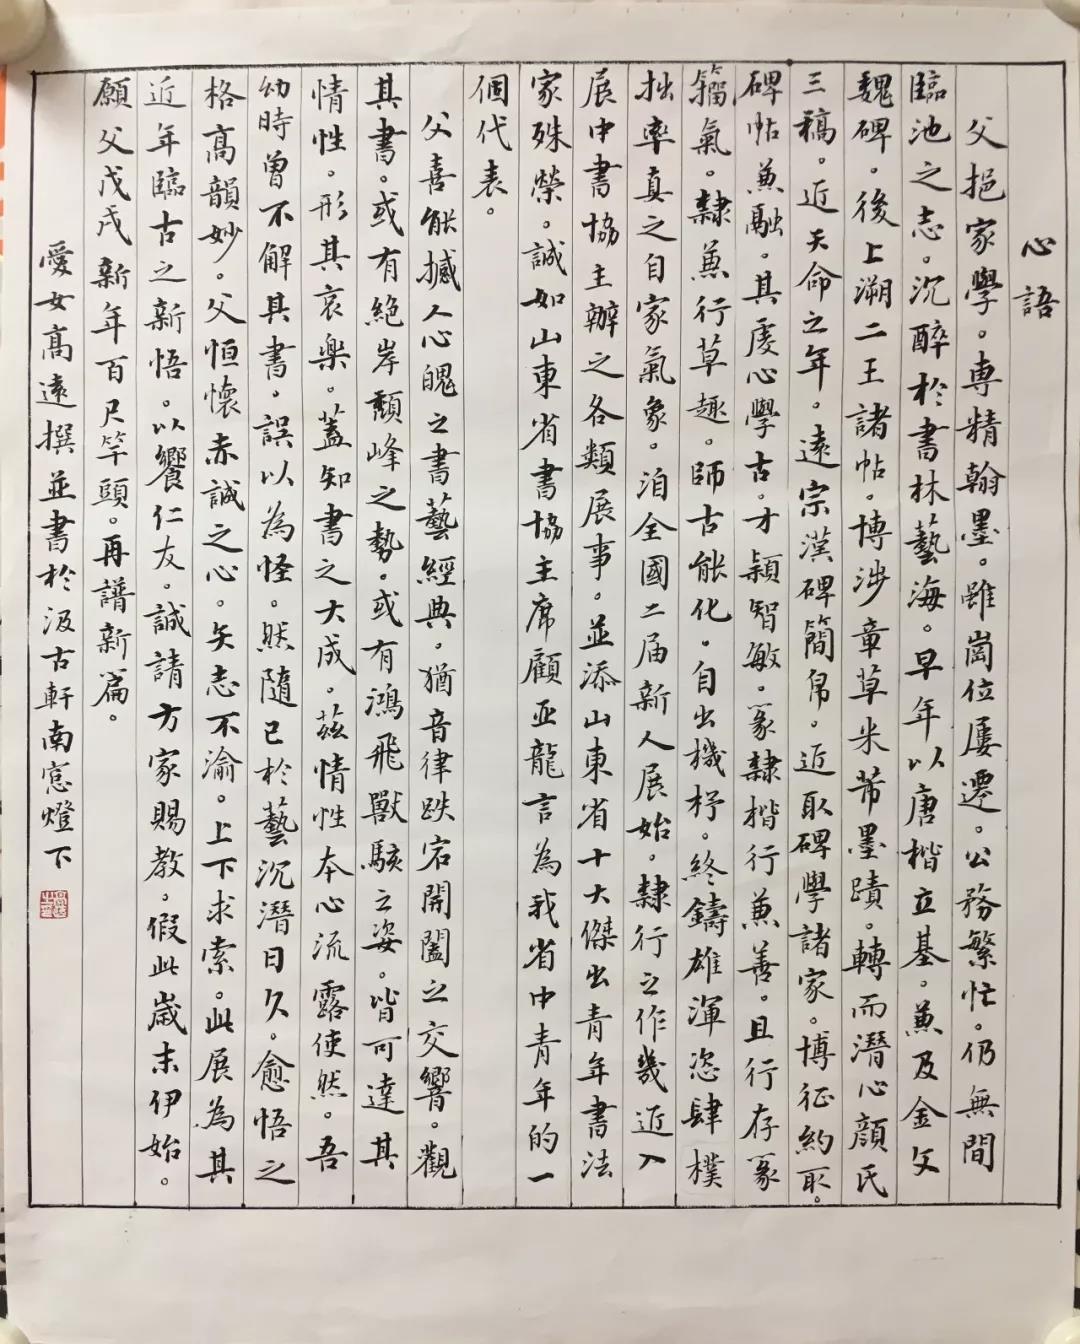 心語
父挹家學。專精翰墨。雖崗位屢遷。公務繁忙。仍無間
臨池之志。沉醉於書林藝海。早年以唐楷立基。兼及金文
魏碑。後上溯二王諸帖。博涉章草米芾墨蹟。轉而潛心顔氏
三稿。近天命之年。遠宗漢碑簡帛。近取碑學諸家。博征約取。
碑帖兼融。其虔心學古。才穎智敏。篆隸楷行兼善。且行存篆
籀氣。隸兼行草趣。師古能化。自出機杼。終鑄雄渾恣肆樸
拙率真之自家氣象。洎全國二届新人展始。隸行之作幾近入
展中書協主辦之各類展事。並添山東省十大傑出青年書法
家殊榮。誠如山東省書協主席顧亚龍言為我省中青年的一
個代表。
父喜能撼人心魄之書藝經典。猶音律跌宕開闔之交響。觀
其書。或有絶岸頹峰之勢。或有鴻飛獸駭之姿。皆可達其
情性。形其哀樂。蓋知書之大成。茲情性本心流露使然。吾
幼時曾不解其書。誤以為怪。然隨己於藝沉潛日久。愈悟之
格高韻妙。父恒懷赤誠之心。矢志不渝。上下求索。此展為其
近年臨古之新悟。以饗仁友。誠請方家賜教。假此歲末伊始。
願父戊戌新年百尺竿頭。再譜新篇。
愛女高遠撰並書於汲古軒南窓燈下